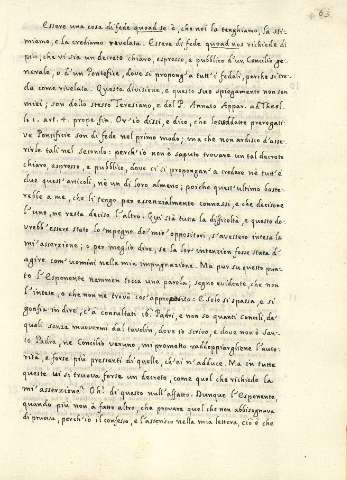 63
Essere una cosa di fede quoad se è, che noi la tenghiamo, la sti-
miamo, e la crediamo rivelata. Essere di fede quoad nos richiede di
più, che vi sia un decreto chiaro, espresso, e pubblico d'un Concilio ge-
nerale, o d'un Pontefice, dove si propong'a tutt'i fedeli, perche si cre-
da come rivelata. Questa divisione, e questo suo spiegamento non son
miei; son dello stesso Teresiano, e del P. Annato Appar. ad Theol.
li. 1. art. 4. prope fin. Or'io dissi, e dico, che le suddette prerogati
ve Pontificie son di fede nel primo modo; ma che non ardisco d'asse-
rirle tali nel secondo: perch'io non ò saputo trovare un tal decreto
chiaro, espresso, e pubblico, dove ci si propongan' a credere nè tutt'e
due quest'articoli, nè un di loro almeno; poiche quest'ultimo baste-
rebbe a me, che li tengo per essenzialmente connessi, e che deciso ne
l'uno, ne resta deciso l'altro. Qui sta tutta la difficoltà, e questo do-
vrebb'essere stato lo impegno de' miei oppositori, s'avessero intesa la
mi'asserzione; o per meglio dire, se la lor intenzion fosse stata d'
agire com'uomini nella mia impugnazione. Ma pur su questo pun-
to l'Esponente nemmen tocca una parola, segno evidente, che non
l'intese, o che non ne trovò cos'approposito: E solo si spassa, e si
gonfia in dire, ch'à consultati 16. Padri, e non so quanti Concili, de'
quali senza muovermi dal tavolin, dove io scrivo, e dove non ò san-
to Padre, nè Concilio veruno, mi prometto raddoppiargliene l'auto-
rità, e forse più pressanti di quelle, ch'ei n'adduce. Ma in tutte
queste vi si truova forse un decreto, come quel che richiede la
mi'asserzione? Oh! di questo null'affatto. Dunque l'Esponente,
quando più non à fatto altro, che provare quel che non abbisognava
di pruova, perch'io il confesso, e l'asserisco nella mia lettera, cio è che